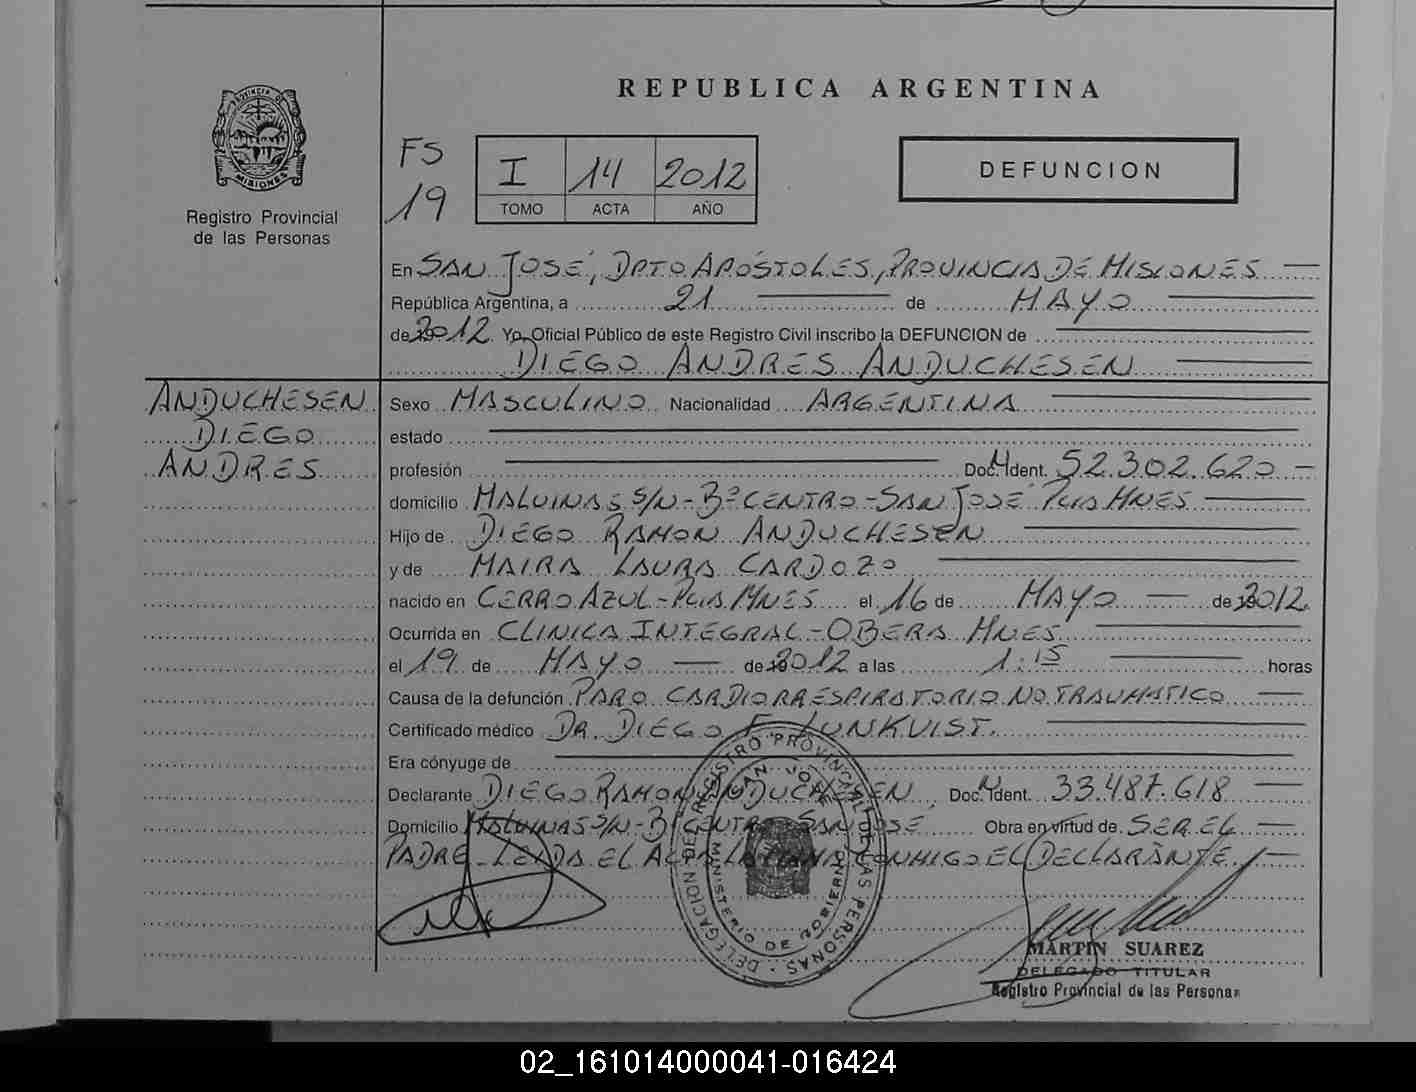 REPUBLICA ARGENTINA
PROVINCIA DE
MISIONES
Registro Provincial
de las Personas
FS
19
I 14 2012
TOMO ACTA AÑO
DEFUNCION
En SAN JOSÉ, DPTO APÓSTOLES, PROVINCIA DE MISIONES
República Argentina, a 21 de MAYO
de 2012 Yo, Oficial Público de este Registro Civil inscribo la DEFUNCION de
DIEGO ANDRES ANDUCHESEN
ANDUCHESEN
DIEGO
ANDRES
Sexo MASCULINO Nacionalidad ARGENTINA
estado
profesión Doc. Ident. 52.302.620
domicilio MALVINAS S/N - Bº CENTRO - SAN JOSÉ PCIA MNES
Hijo de DIEGO RAMON ANDUCHESEN
y de MAIRA LAURA CARDOZO
nacido en CERRO AZUL - PCIA MNES el 16 de MAYO de 2012
Ocurrida en CLINICA INTEGRAL - OBERA MNES
el 19 de MAYO de 2012 a las 1:15 horas
Causa de la defunción PARO CARDIORRESPIRATORIO NO TRAUMATICO
Certificado médico DR. DIEGO F. LUNKVIST.
Era cónyuge de
Declarante DIEGO RAMON ANDUCHESEN Doc. Ident. 33.487.618
Domicilio MALVINAS S/N - Bº CENTRO SAN JOSE Obra en virtud de SER EL
PADRE - LEIDA EL ACTA LA FIRMA CONMIGO EL DECLARANTE
DELEGACION DEL REGISTRO PROVINCIAL DE LAS PERSONAS
SAN JOSE
MINISTERIO DE GOBIERNO
MARTIN SUAREZ
DELEGADO TITULAR
Registro Provincial de las Personas
02_161014000041-016424